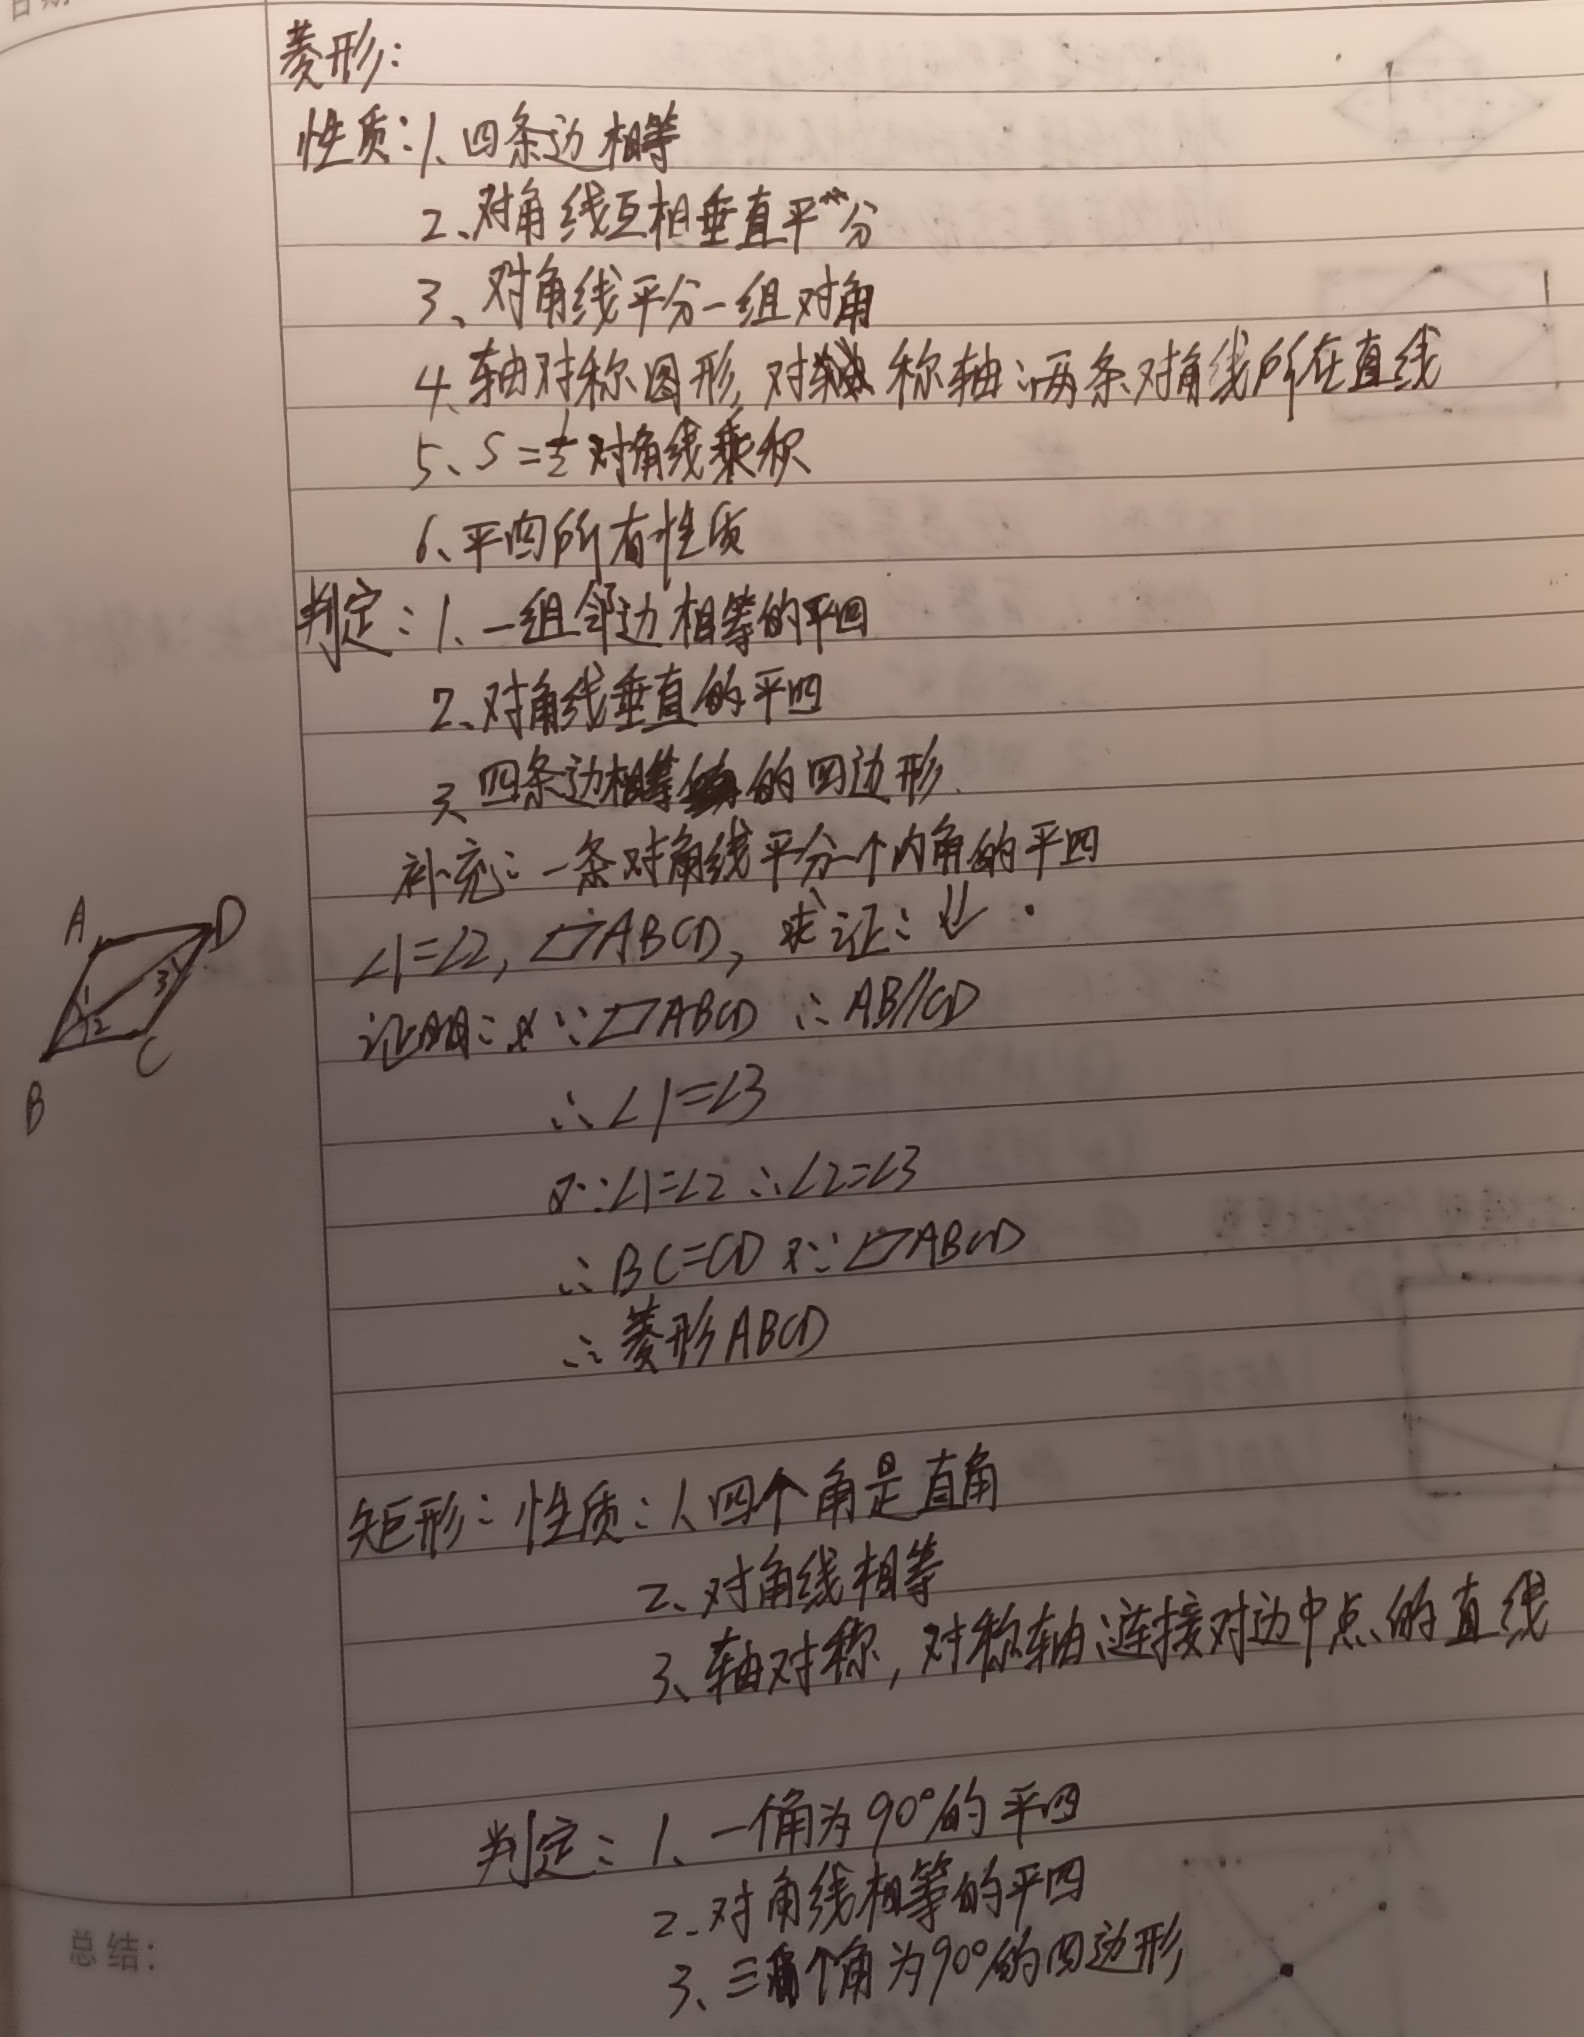 菱形:
性质:1、四条边相等
2、对角线互相垂直平分
3、对角线平分一组对角
4、轴对称图形,对称轴:两条对角线所在直线
5、S=½对角线乘积
6、平四所有性质
判定:1、一组邻边相等的平四
2、对角线垂直的平四
3、四条边相等的四边形
补充:一条对角线平分一个内角的平四
∠1=∠2,▱ABCD,求证:↓
证明:∵▱ABCD ∴AB∥CD
∴∠1=∠3
又∵∠1=∠2 ∴∠2=∠3
∴BC=CD 又∵▱ABCD
∴菱形ABCD
A D
1 3
2
C
B
矩形:性质:1、四个角是直角
2、对角线相等
3、轴对称,对称轴:连接对边中点的直线
判定:1、一个角为90°的平四
2、对角线相等的平四
3、三个角为90°的四边形
总结: